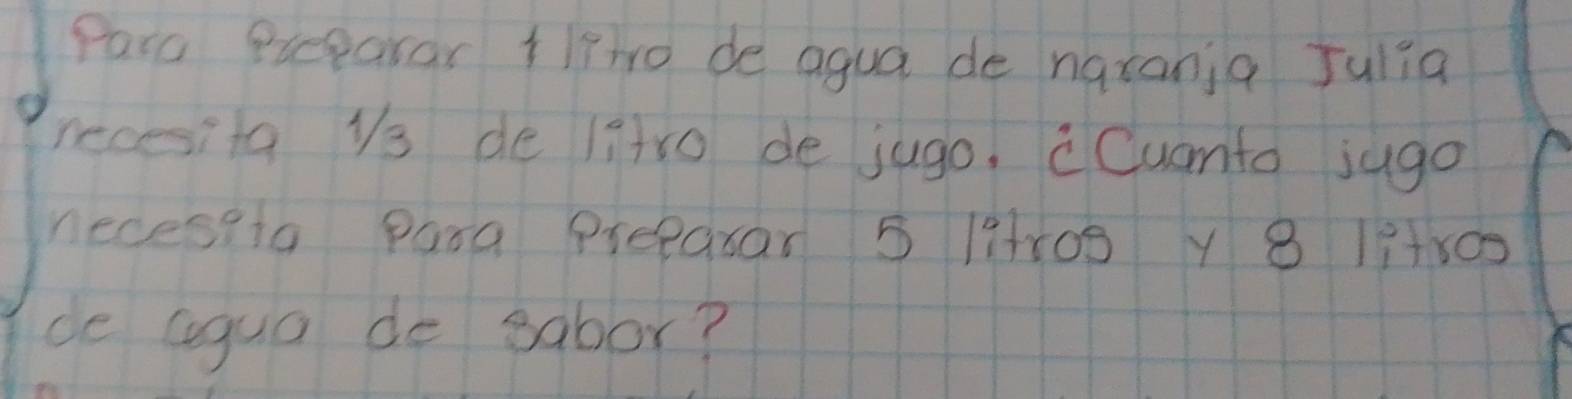 Para Preparar 1 litro de agua de naranja Julia
necesita 1/3 de litro de jugo. ¿Cuanto jugo
necesita para Preparar 5 litros y 8 litros
de agua de sabor?